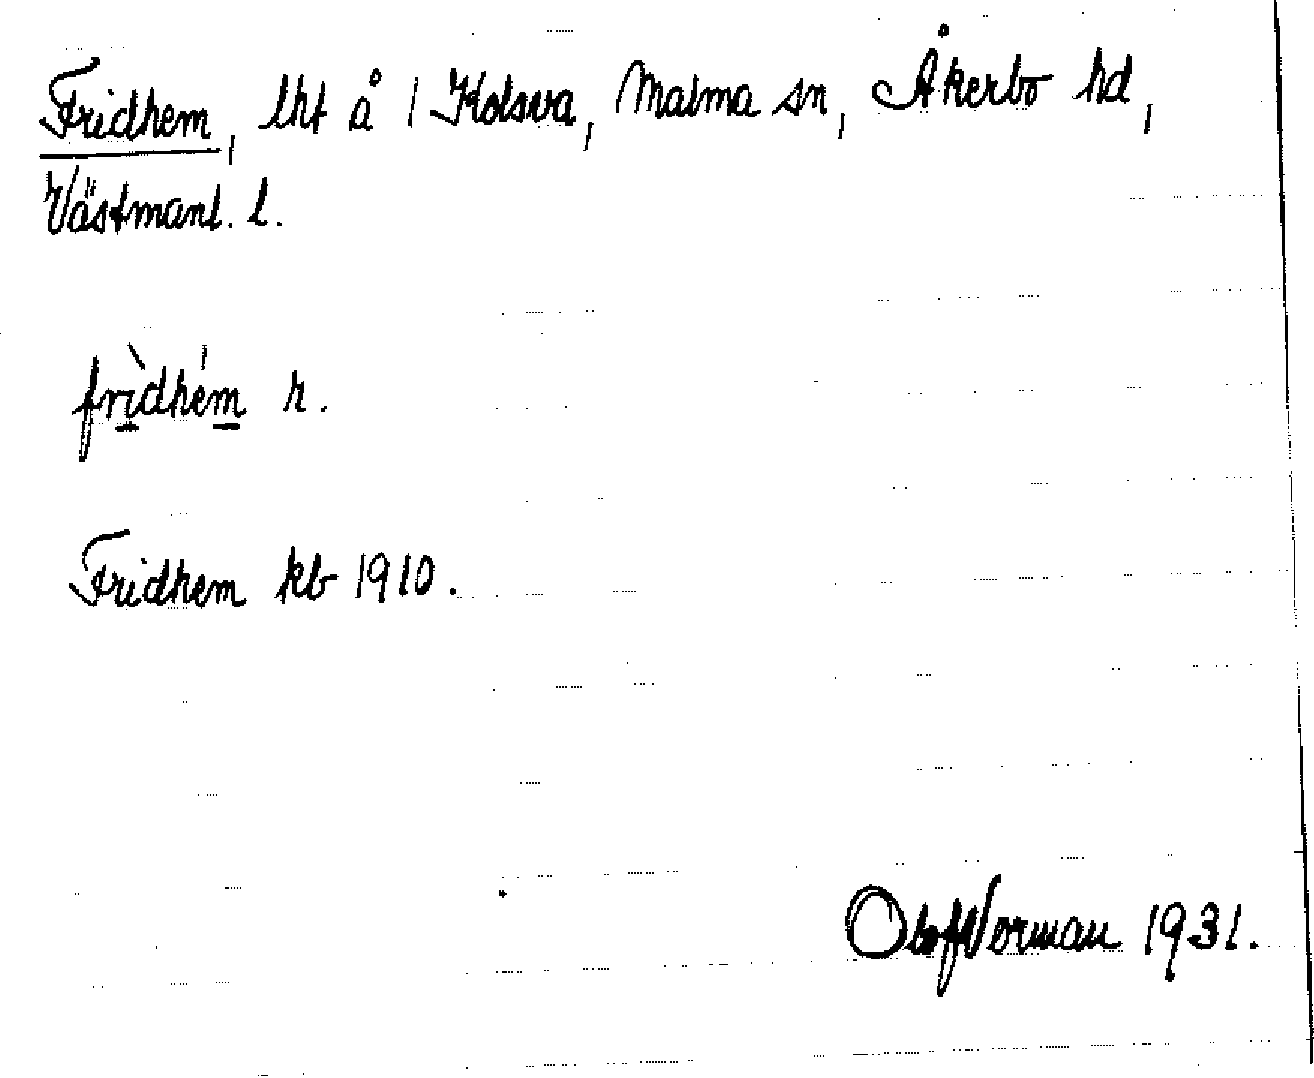 Fridhem, lht å 1 Kolsva, Malma sn, Åkerbo hd,
Västmanl. l.
frìdhém r.
Fridhem kb 1910.
Olof Norman 1931.